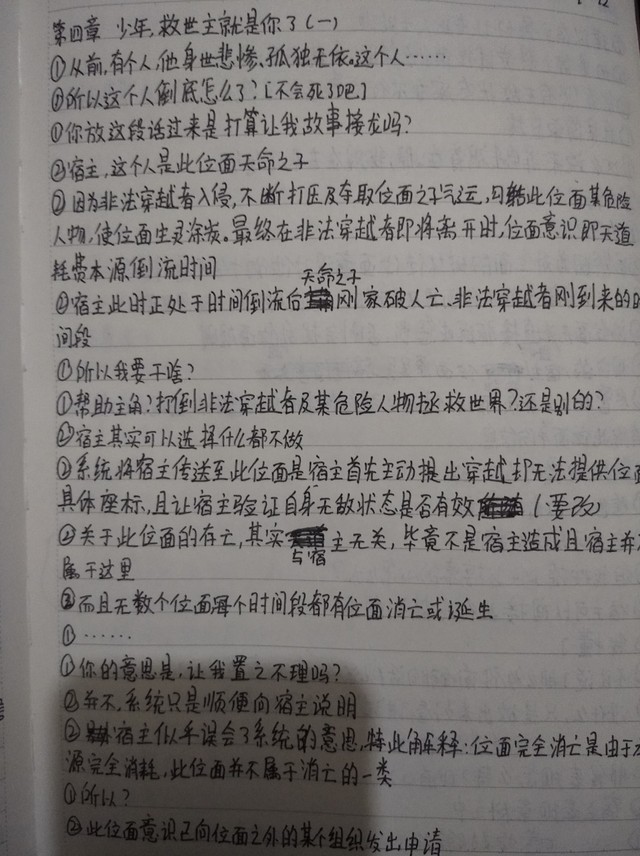 第四章 少年,救世主就是你了(一)
①从前,有个人,他身世悲惨、孤独无依。这个人……
①所以这个人倒底怎么了?[不会死了吧]
①你放这段话过来是打算让我故事接龙吗?
②宿主,这个人是此位面天命之子
②因为非法穿越者入侵,不断打压及夺取位面之子气运,勾结此位面某危险
人物,使位面生灵涂炭。最终在非法穿越者即将离开时,位面意识即天道
耗费本源倒流时间
②宿主此时正处于时间倒流后天命之子刚家破人亡、非法穿越者刚到来的时
间段
①所以我要干啥?
①帮助主角?打倒非法穿越者及某危险人物拯救世界?还是别的?
②宿主其实可以选择什么都不做
②系统将宿主传送至此位面是宿主首先主动提出穿越却无法提供位面
具体座标,且让宿主验证自身无敌状态是否有效(要改)
②关于此位面的存亡,其实与宿主无关,毕竟不是宿主造成且宿主并不
属于这里
②而且无数个位面每个时间段都有位面消亡或诞生
①……
①你的意思是,让我置之不理吗?
②并不,系统只是顺便向宿主说明
②宿主似乎误会了系统的意思,特此解释:位面完全消亡是由于本
源完全消耗,此位面并不属于消亡的一类
①所以?
②此位面意识已向位面之外的某个组织发出申请